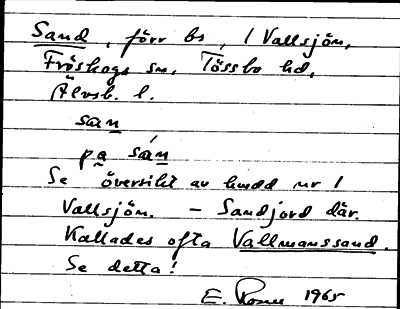 Sand, förr bs, i Vallsjön,
Fröskogs sn. Tössbo hd,
Älvsb. l.
san
pa sán
Se översikt av hudd nr 1
Vallsjön. – Sandjord där.
Kallades ofta Vallmanssand.
Se detta!
E. 1965